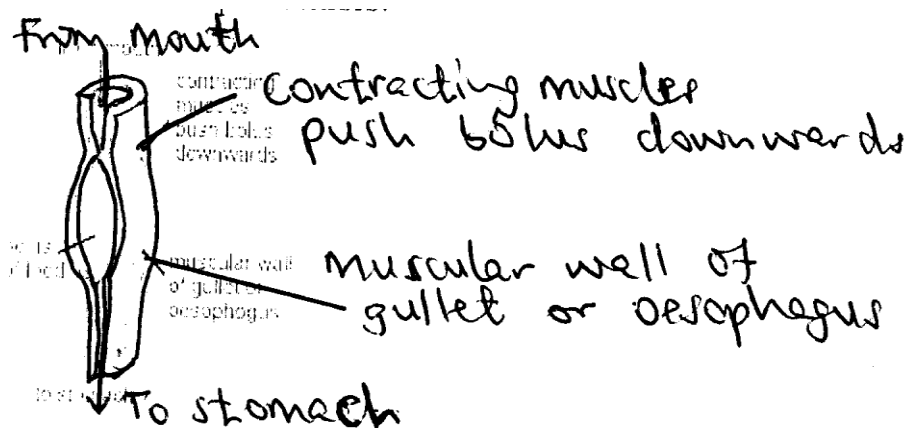 From mouth
contracting
muscles
push bolus
downwards
Contracting muscles
push bolus downwards
muscular wall
of gullet or
oesophogus
Muscular wall of
gullet or oesophagus
To stomach